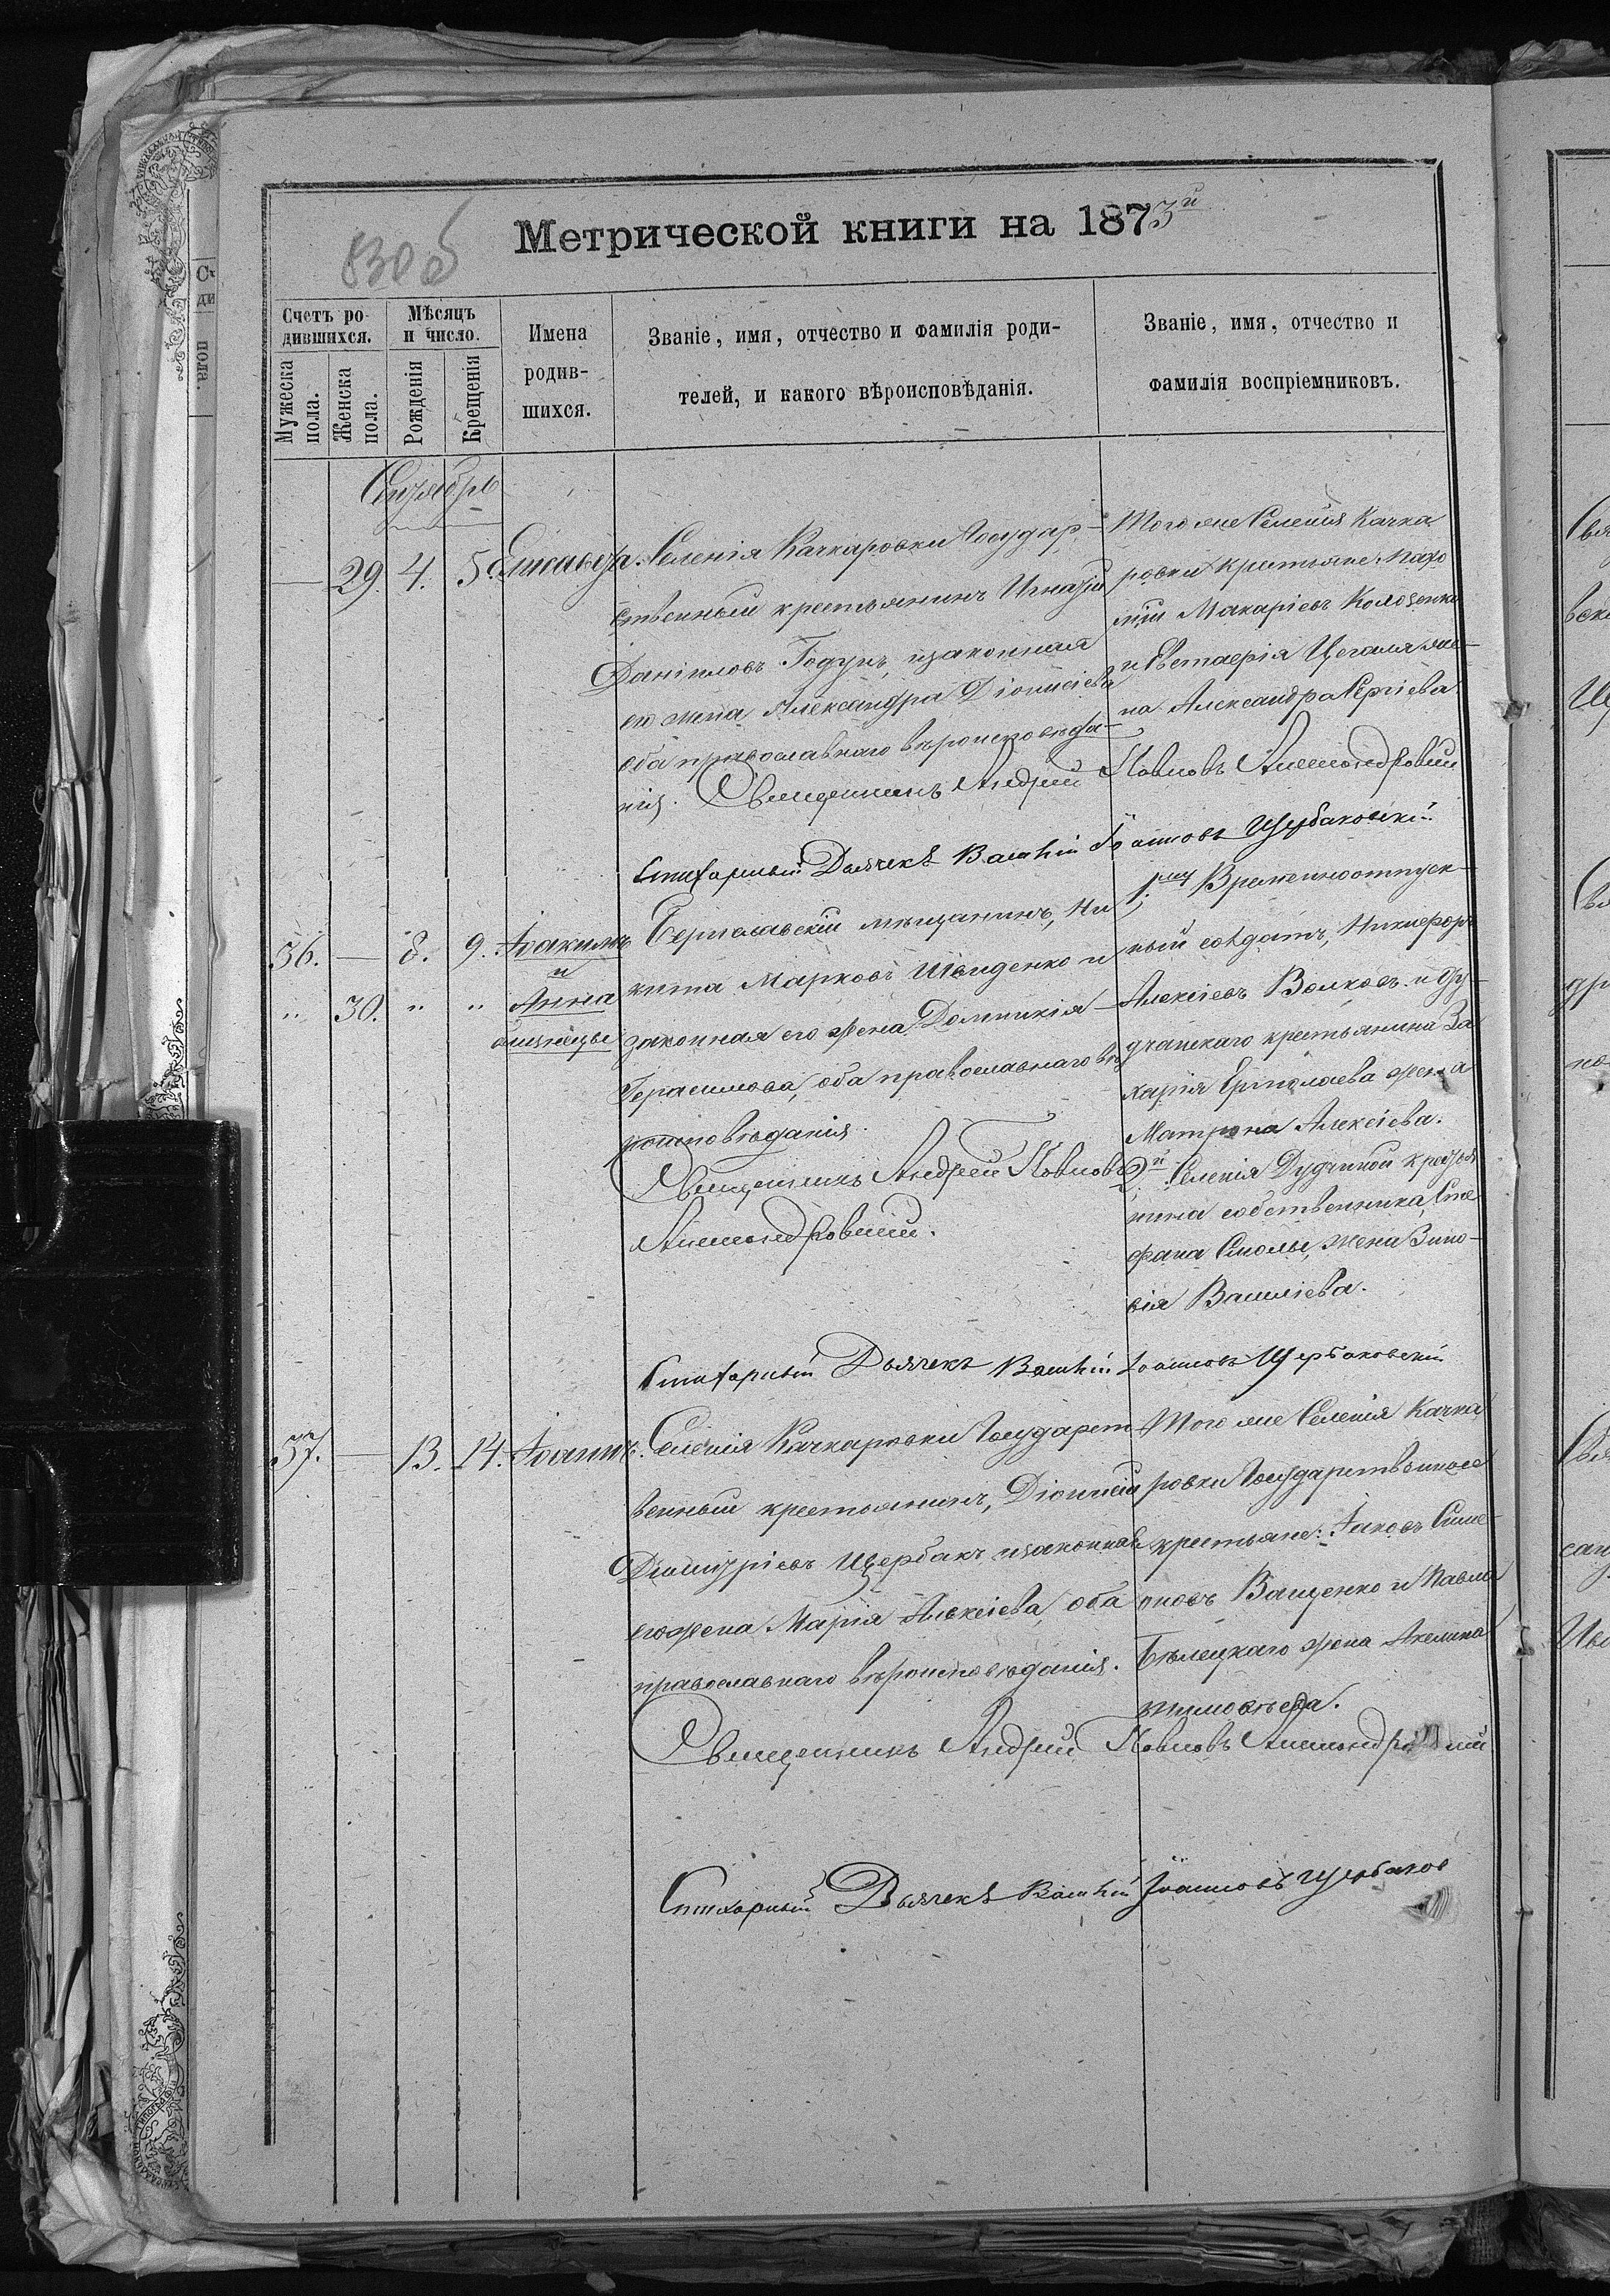 830 об
Метрической книги на 1873й
Счетъ ро-
дившихся.
Мужеска
пола.
Женска
пола.
Мѣсяцъ
и число.
Рожденія
Крещенія
Имена
родив-
шихся.
Званіе, имя, отчество и фамилія роди-
телей, и какого вѣроисповѣданія.
Званіе, имя, отчество и
фамилія воспріемниковъ.
Сентябрь
— 29. 4. 5. Елисавета.
Селенія Качкаровки Государ-
ственный крестьянинъ Игнатій
Даніиловъ Годунъ, изаконная
его жена Александра Діонисіева
оба православнаго вѣроисповѣда-
нія.
Тогоже Селенія Качка
ровки крестьяне: Пахо
мій Макаріевъ Колоденко
и Евстаѳія Цегаля же-
на Александра Сергіева
Священникъ Андрей Павловъ Александровскій
Стихарный Дьячекъ Василій Іоанновъ Щербаковскій
56. — 8. 9. Іоакимъ
и
" 30. " " Анна
близнецы
Бериславскій мѣщанинъ, Ни
кита Марковъ Швиденко и
законная его жена Домникія
Герасимова, оба православнаго вѣ
роисповѣданія.
Священникъ Андрей Павловъ
Александровскій.
1; Временноотпуск-
ный солдатъ, Никифоръ
Алексіевъ Волковъ и Ду-
дчанскаго крестьянина За
харія Ермолаева жена
Матрона Алексіева.
2й Селенія Дудчиной крестья
нина собственника, Сте
фана Смолы, жена Зино-
вія Василіева.
Стихарный Дьячекъ Василій Іоанновъ Щербаковскій
57. — 13. 14. Іоаннъ.
Селенія Качкаровки Государст
венный крестьянинъ, Діонисій
Димитріевъ Щербакъ изаконная
его жена Марія Алексіева, оба
православнаго вѣроисповѣданія.
Того же Селенія Качка
ровки Государственные
крестьяне: Іаковъ Симе
оновъ Ващенко и Павла
Бѣлецкаго жена Акелина
Тимоѳѣева.
Священникъ Андрей Павловъ Александровскій
Стихарный Дьячекъ Василій Іоанновъ Щербаков